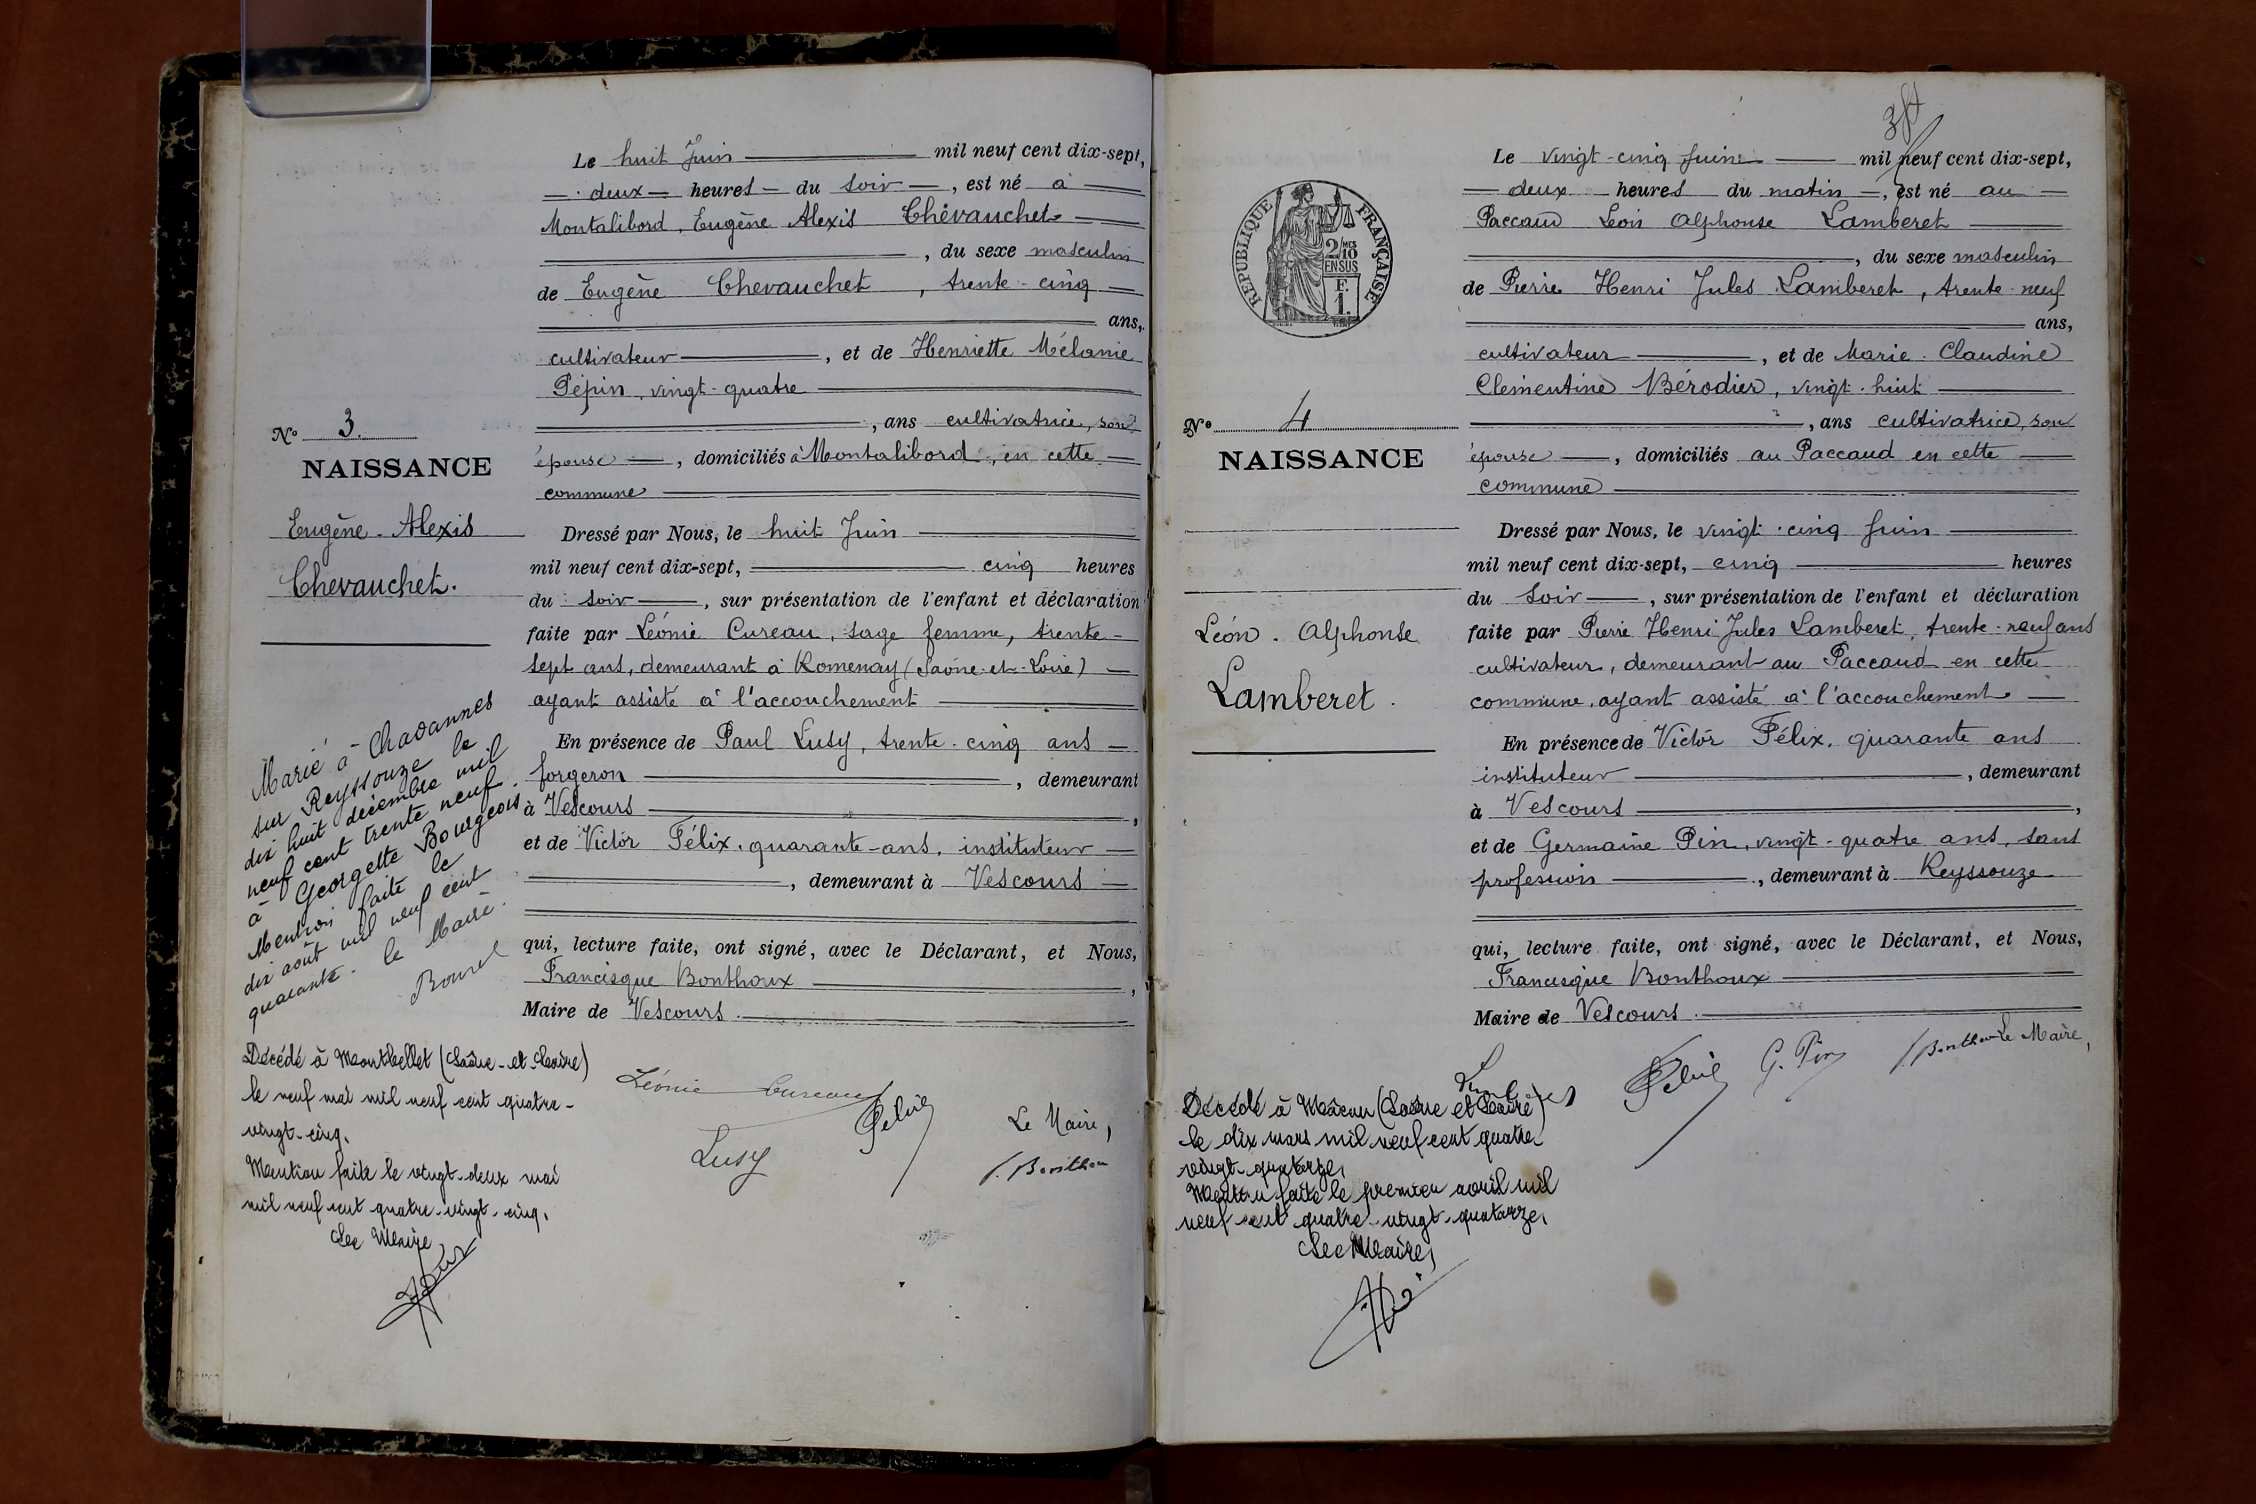 Le huit Juin mil neuf cent dix-sept,
deux heures du soir, est né à
Montalibord, Eugène Alexis Chevauchet
, du sexe masculin
de Eugène Chevauchet, trente-cinq
ans,
cultivateur, et de Henriette Mélanie
Pépin, vingt-quatre
, ans cultivatrice, son
épouse, domiciliés à Montalibord, en cette
commune
N° 3.
NAISSANCE
Eugène-Alexis
Chevauchet.
Dressé par Nous, le huit Juin
mil neuf cent dix-sept, cinq heures
du soir, sur présentation de l'enfant et déclaration
faite par Léonie Cureau, sage femme, trente-
sept ans, demeurant à Romenay (Saône-et-Loire)
ayant assisté à l'accouchement
En présence de Paul Lusy, trente-cinq ans
forgeron, demeurant
à Vescours,
et de Victor Félix, quarante-ans, instituteur
, demeurant à Vescours
qui, lecture faite, ont signé, avec le Déclarant, et Nous,
Francisque Bonthoux,
Maire de Vescours.
Léonie Cureau
Lusy
Félix
Le Maire,
F. Bonthoux
Marié à Chavannes
sur Reyssouze le
dix huit décembre mil
neuf cent trente neuf
à Georgette Bourgeois
Mention faite le
dix août mil neuf cent
quarante. le Maire.
Décédé à Montbellet (Saône-et-Loire)
le neuf mai mil neuf cent quatre-
vingt-cinq.
Mention faite le vingt-deux mai
mil neuf cent quatre-vingt-cinq.
Le Maire
RÉPUBLIQUE FRANÇAISE
2/10 MES
EN SUS
F.
1.
Le vingt-cinq Juin mil neuf cent dix-sept,
deux heures du matin, est né au
Paccaud Léon Alphonse Lamberet
, du sexe masculin
de Pierre Henri Jules Lamberet, trente-neuf
ans,
cultivateur, et de Marie-Claudine
Clémentine Bérodier, vingt-huit
, ans cultivatrice, son
épouse, domiciliés au Paccaud en cette
commune
N° 4
NAISSANCE
Léon-Alphonse
Lamberet.
Dressé par Nous, le vingt-cinq Juin
mil neuf cent dix-sept, cinq heures
du soir, sur présentation de l'enfant et déclaration
faite par Pierre Henri Jules Lamberet, trente-neuf ans
cultivateur, demeurant au Paccaud en cette
commune, ayant assisté à l'accouchement
En présence de Victor Félix, quarante ans
instituteur, demeurant
à Vescours,
et de Germaine Pin, vingt-quatre ans, sans
profession, demeurant à Reyssouze
qui, lecture faite, ont signé, avec le Déclarant, et Nous,
Francisque Bonthoux
Maire de Vescours.
Félix
G. Pin
F. Bonthoux Le Maire,
Décédé à Mâcon (Saône et Loire)
le dix mars mil neuf cent quatre
vingt-quatorze,
Mention faite le premier avril mil
neuf cent quatre-vingt-quatorze,
Le Maire,